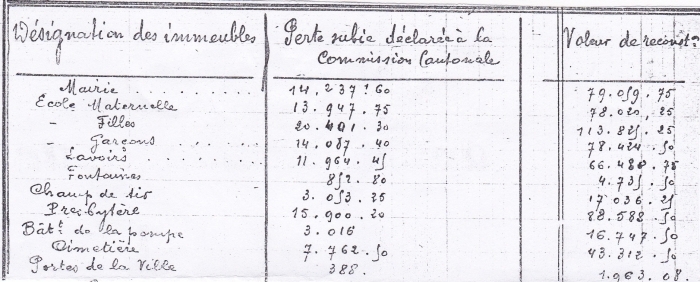 Désignation des immeubles Perte subie déclarée à la Commission Cantonale Valeur de reconston
Mairie . . . . . . . . 14.237.60 79.059.75
École Maternelle 13.947.75 78.020,25
- Filles 20.401.30 113.825.25
- Garçons . . . . . 14.087.40 78.424.50
Lavoirs . . . . . . . 11.964.45 66.480.75
Fontaines 852.80 4.735.50
Champ de tir 3.053.25 17036.25
Presbytère 15.900.20 88.582.50
Bâtt de la pompe 3.016 16.747.50
Cimetière 7.762.50 43.312.50
Portes de la Ville 388. 1.963.08.